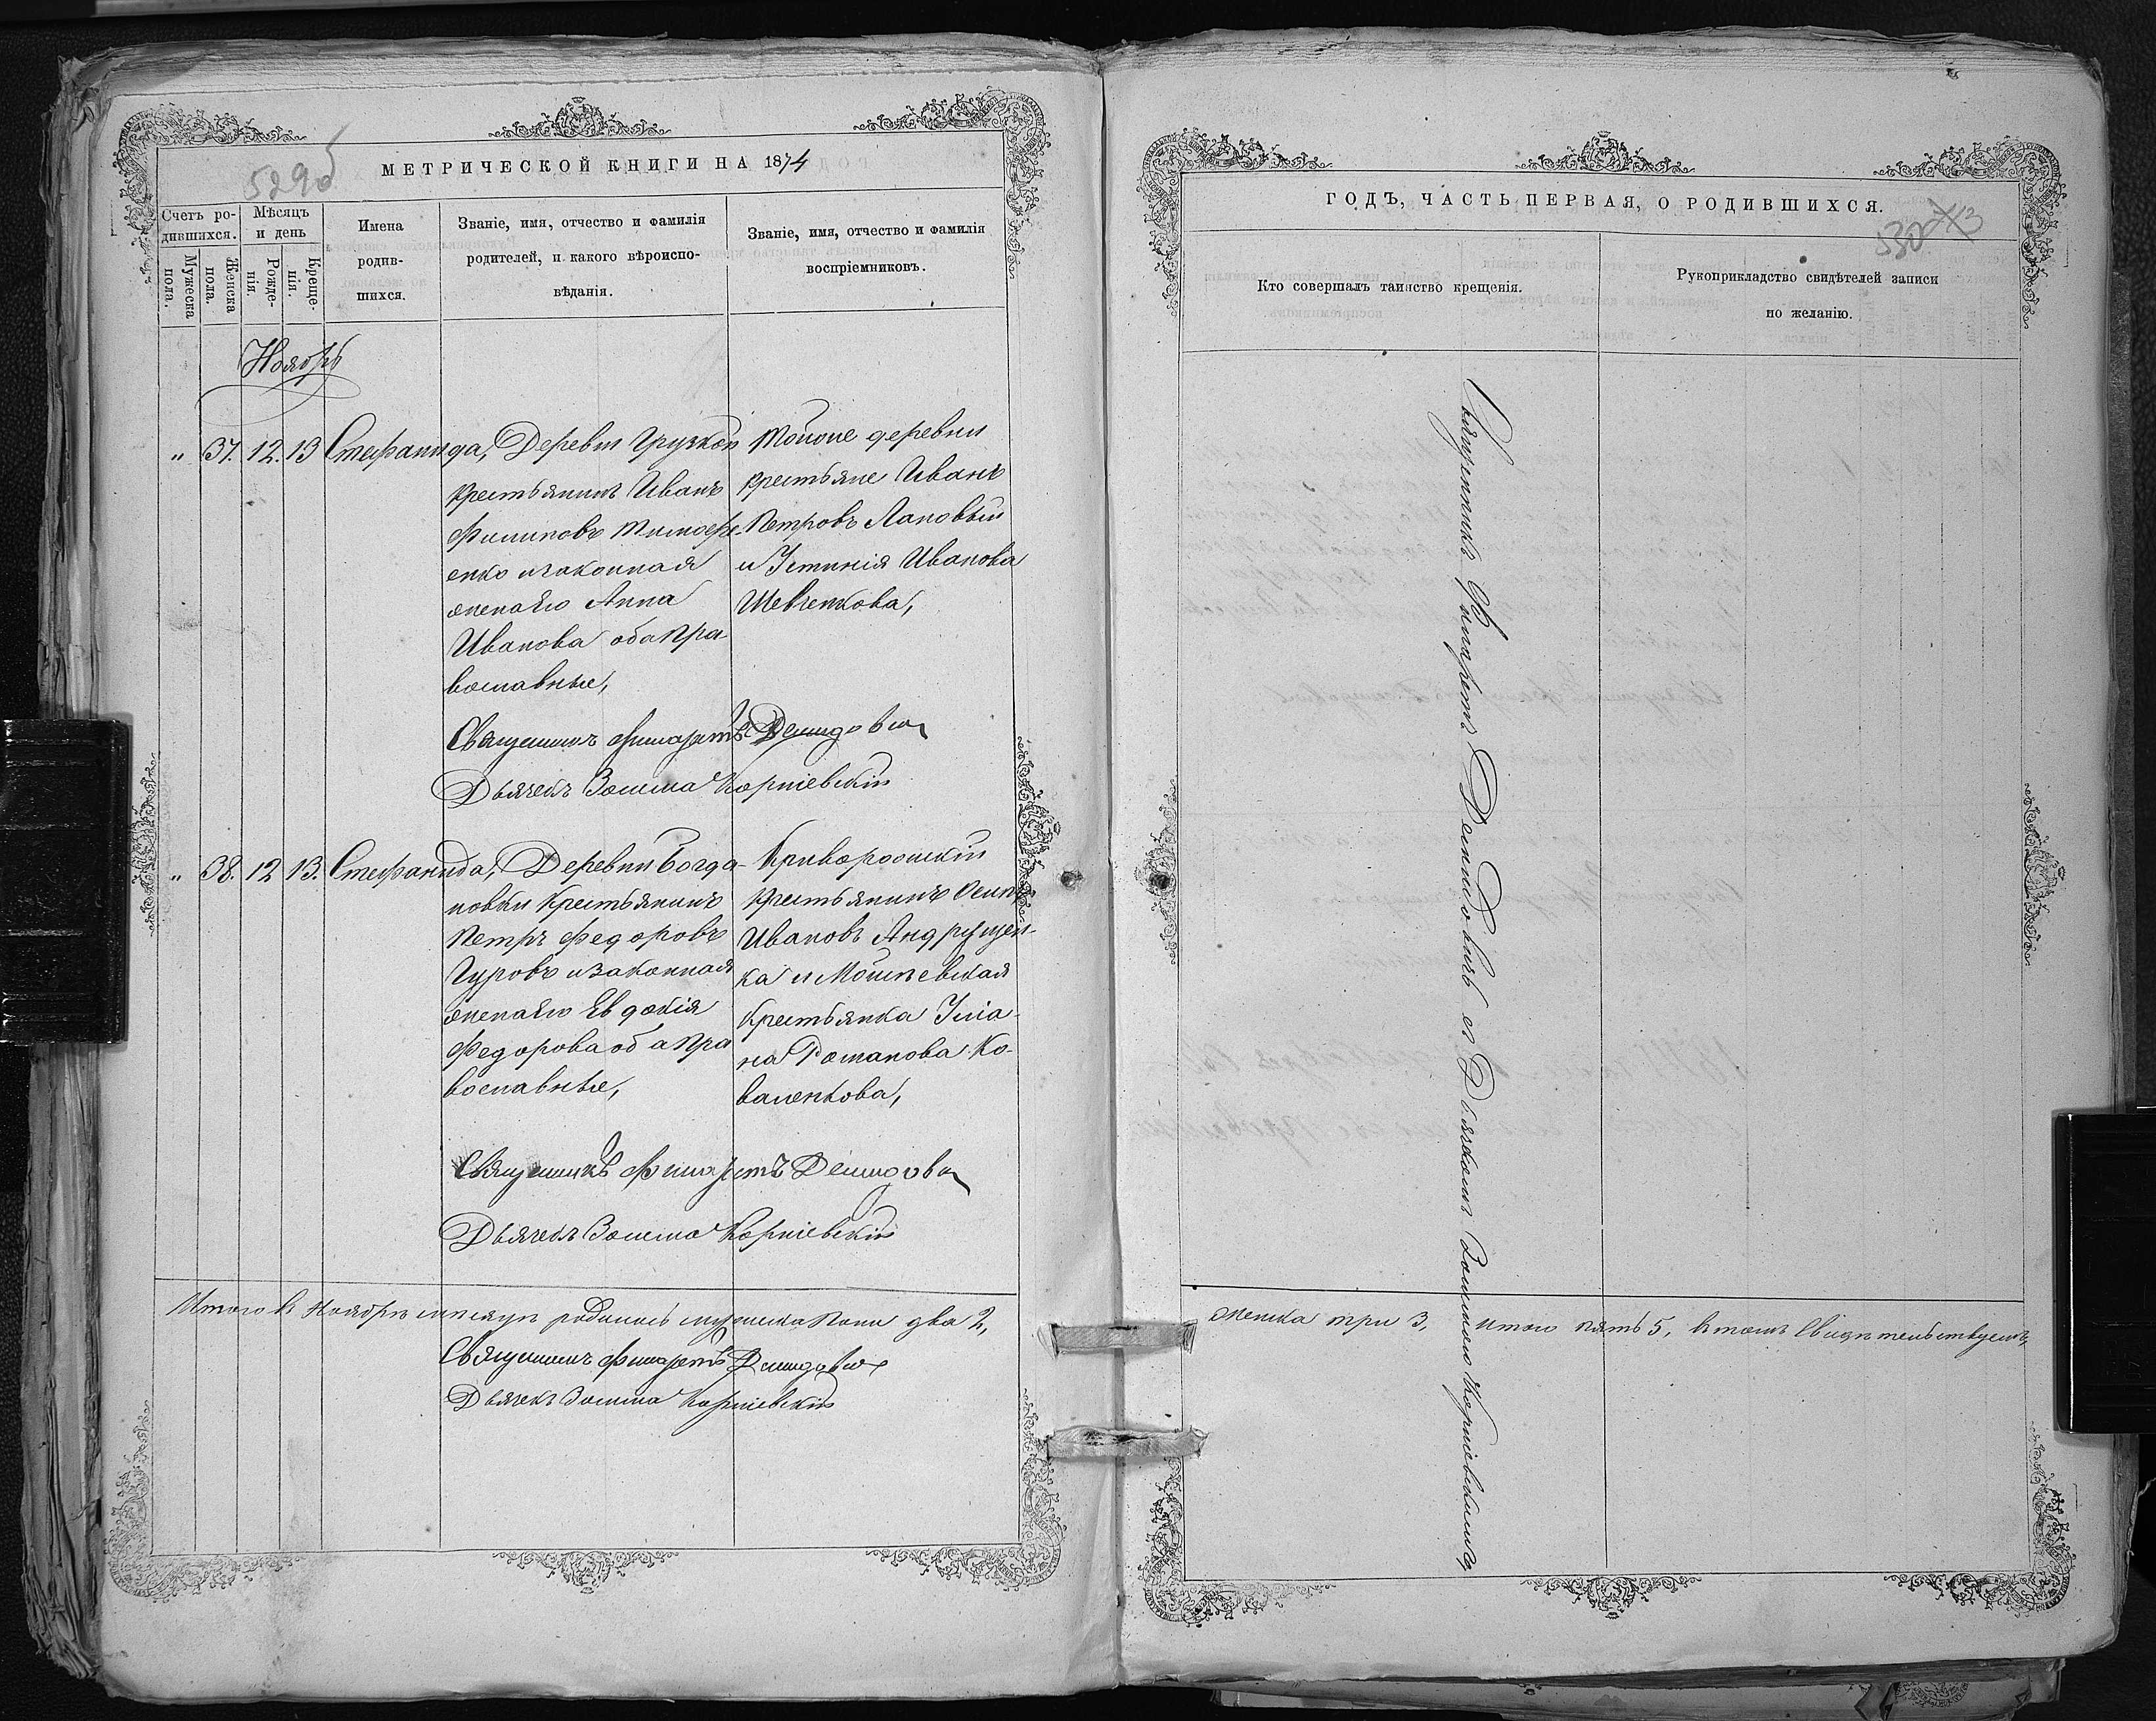 529об
МЕТРИЧЕСКОЙ КНИГИ НА 1874
Счетъ ро-
дившихся.
Мѣсяцъ
и день
Имена
родив-
шихся.
Званіе, имя, отчество и фамилія
родителей, и какого вѣроиспо-
вѣданія.
Званіе, имя, отчество и фамилія
воспріемниковъ.
Мужеска
пола.
Женска
пола.
Рожде-
нія.
Креще-
нія.
Ноябрь
" 37. 12. 13 Стефанида,
Деревни Грузкой
крестьянинъ Иванъ
Филиповъ Тимофе-
енко и законная
жена его Анна
Иванова оба пра-
вославные,
Тойоже деревни
крестьяне Иванъ
Петровъ Лаповый
и Устинія Иванова
Шевченкова,
Священникъ Филаретъ Демидовичъ
Дьячекъ Зосима Корніевскій
" 38. 12 13. Стефанида,
Деревни Богда-
новки крестьянинъ
Петръ Федоровъ
Гуровъ и законная
жена его Евдокія
Федорова оба пра
вославные,
Криворожскій
крестьянинъ Осипъ
Ивановъ Андрущен-
ка и
крестьянка Улія-
на Романова Ко-
валенкова,
Священникъ Филаретъ Демидовичъ
Дьячекъ Зосима Корніевскій
Итого въ Ноябрѣ мѣсяцѣ родилось мужеска пола два 2,
Священникъ Филаретъ Демидовичъ
Дьячекъ Зосима Корніевскій
ГОДЪ, ЧАСТЬ ПЕРВАЯ, О РОДИВШИХСЯ.
530
Кто совершалъ таинство крещенія.
Рукоприкладство свидѣтелей записи
по желанію.
Священникъ Филаретъ Демидовичъ съ Дьячкомъ Зосимою Корніевскимъ,
женска три 3, итого пять 5, въ томъ свидѣтельствуемъ,